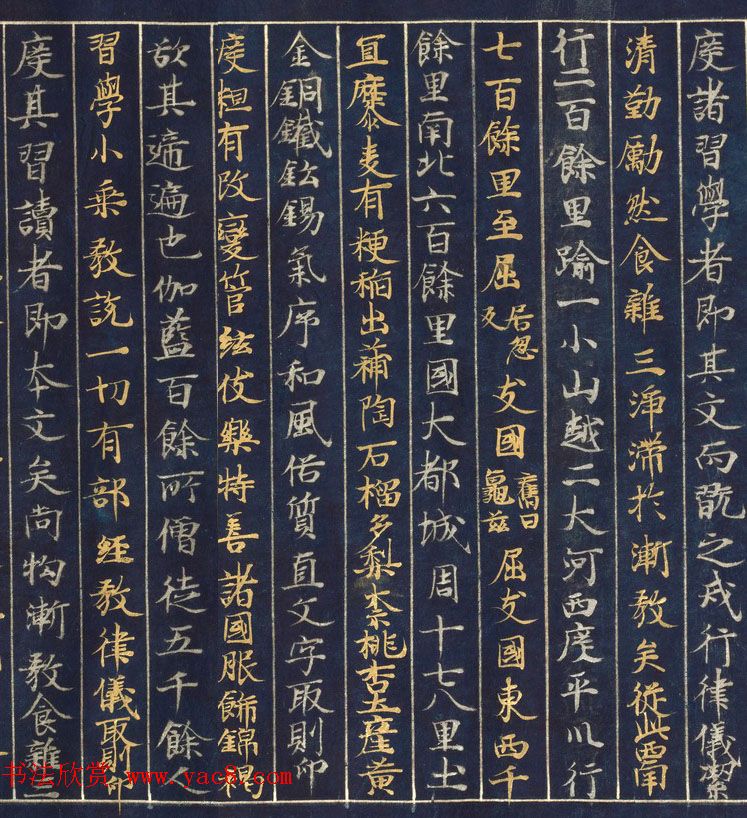 度諸習學者即其文而翫之戒行律儀潔
清勤勵然食雜三淨滯於漸教矣從此西南
行二百餘里踰一小山越二大河西度平川行
七百餘里至屈居勿反支國舊曰龜茲屈支國東西千
餘里南北六百餘里國大都城周十七八里土
宜穈麦有粳稻出蒲陶石榴多梨柰桃杏土產黃
金銅鐵鈆錫氣序和風俗質直文字取則印
度粗有改變管絃伎樂特善諸國服飾錦褐
其遞遍也伽藍百餘所僧徒五千餘人
習學小乘教説一切有部經教律儀取則印
度其習讀者即本文矣尚拘漸教食雜三
书法欣赏 www.yac8.com